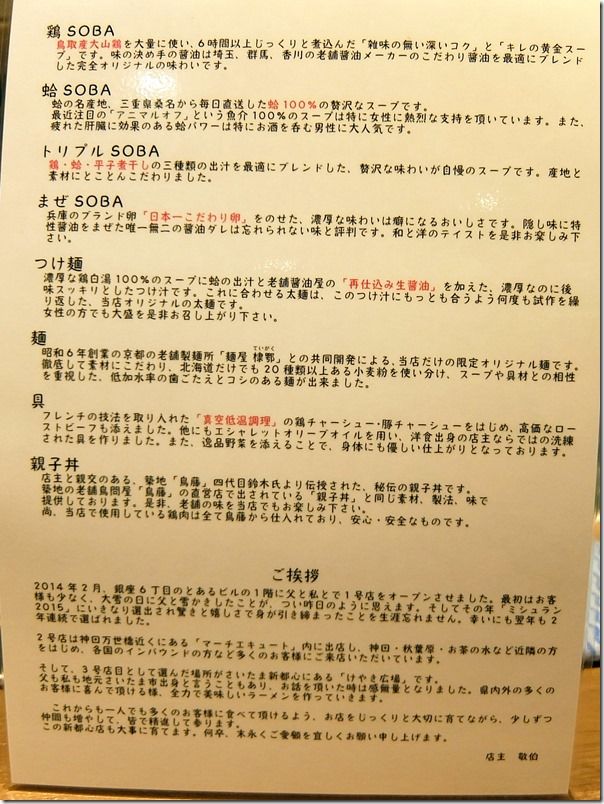 鶏SOBA
鳥取産大山鶏を大量に使い、6時間以上じっくりと煮込んだ「雑味の無い深いコク」と「キレの黄金スー
プ」です。味の決め手の醤油は埼玉、群馬、香川の老舗醤油メーカーのこだわり醤油を最適にブレンド
した完全オリジナルの味わいです。
蛤SOBA
蛤の名産地、三重県桑名から毎日直送した蛤100%の贅沢なスープです。
最近注目の「アニマルオフ」という魚介100%のスープは特に女性に熱烈な支持を頂いています。また、
疲れた肝臓に効果のある蛤パワーは特にお酒を呑む男性に大人気です。
トリプルSOBA
鶏・蛤・平子煮干しの三種類の出汁を最適にブレンドした、贅沢な味わいが自慢のスープです。産地と
素材にとことんこだわりました。
まぜSOBA
兵庫のブランド卵「日本一こだわり卵」をのせた、濃厚な味わいは癖になるおいしさです。隠し味に特
性醤油をまぜた唯一無二の醤油ダレは忘れられない味と評判です。和と洋のテイストを是非お楽しみ下
さい。
つけ麺
濃厚な鶏白湯100%のスープに蛤の出汁と老舗醤油屋の「再仕込み生醤油」を加えた、濃厚なのに後
味スッキリとしたつけ汁です。これに合わせる太麺は、このつけ汁にもっとも合うよう何度も試作を繰
り返した、当店オリジナルの太麺です。
女性の方でも大盛を是非お召し上がり下さい。
麺
昭和6年創業の京都の老舗製麺所「麺屋 棣鄂」との共同開発による、当店だけの限定オリジナル麺です。
ていがく
徹底して素材にこだわり、北海道だけでも20種類以上ある小麦粉を使い分け、スープや具材との相性
を重視した、低加水率の歯ごたえとコシのある麺が出来ました。
具
フレンチの技法を取り入れた「真空低温調理」の鶏チャーシュー・豚チャーシューをはじめ、高価なロー
ストビーフも添えました。他にもエシャレットオリーブオイルを用い、洋食出身の店主ならではの洗練
された具を作りました。また、逸品野菜を添えることで、身体にも優しい仕上がりとなっております。
親子丼
店主と親交のある、築地「鳥藤」四代目鈴木氏より伝授された、秘伝の親子丼です。
築地の老舗鳥問屋「鳥藤」の直営店で出されている「親子丼」と同じ素材、製法、味で
提供しております。是非、老舗の味を当店でもお楽しみ下さい。
尚、当店で使用している鶏肉は全て鳥藤から仕入れており、安心・安全なものです。
ご挨拶
2014年2月、銀座6丁目のとあるビルの1階に父と私とで1号店をオープンさせました。最初はお客
様も少なく、大雪の日に父と雪かきしたことが、つい昨日のように思えます。そしてその年「ミシュラン
2015」にいきなり選出され驚きと嬉しさで身が引き締まったことを生涯忘れません。幸いにも翌年も2
年連続で選ばれました。
2号店は神田万世橋近くにある「マーチエキュート」内に出店し、神田・秋葉原・お茶の水など近隣の方
をはじめ、各国のインバウンドの方など多くのお客様にご来店いただいています。
そして、3号店目として選んだ場所がさいたま新都心にある「けやき広場」です。
父も私も地元さいたま市出身と言うこともあり、お話を頂いた時は感無量となりました。県内外の多くの
お客様に喜んで頂ける様、全力で美味しいラーメンを作っていきます。
これからも一人でも多くのお客様に食べて頂けるよう、お店をじっくりと大切に育てながら、少しずつ
仲間も増やして、皆で精進して参ります。
この新都心店も大事に育てます。何卒、末永くご愛顧を宜しくお願い申し上げます。
店主 敬伯